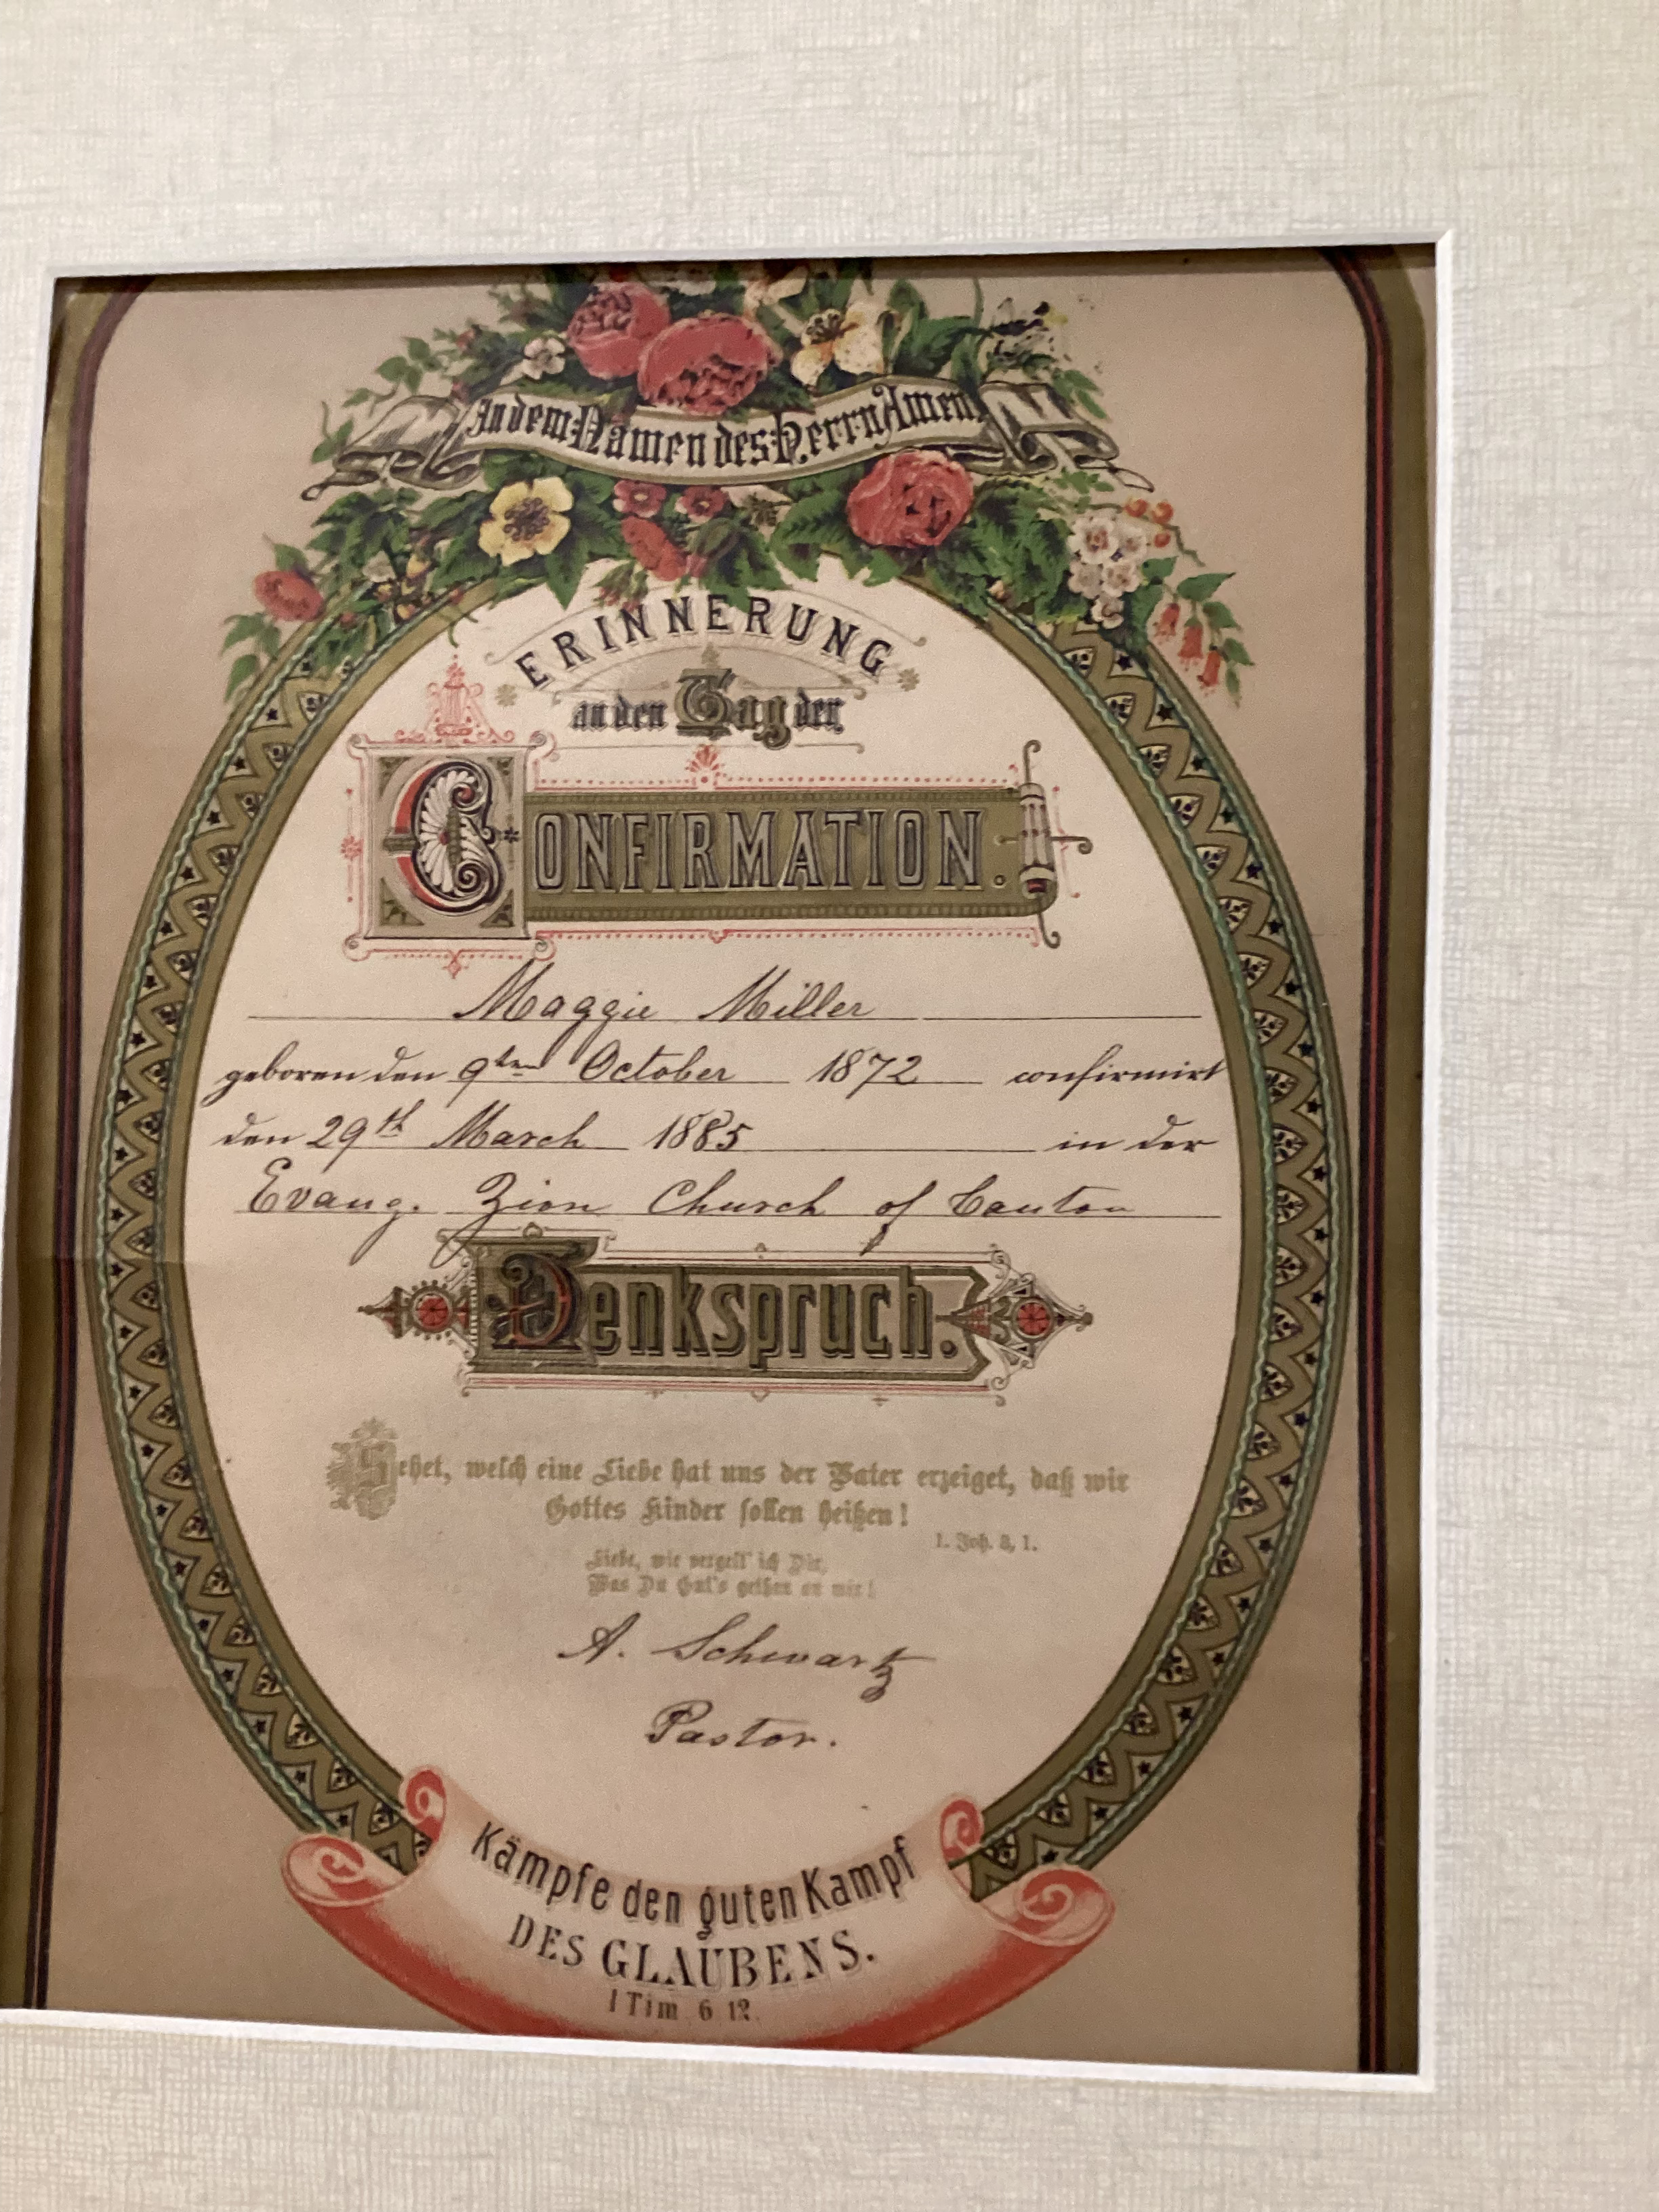 In dem Namen des Herrn Amen
ERINNERUNG
an den Tag der
CONFIRMATION.
Maggie Miller
geboren den 9ten October 1872 confirmirt
den 29th March 1885 in der
Evang. Zion Church of Canton
Denkspruch.
Sehet, welch eine Liebe hat uns der Vater erzeiget, daß wir
Gottes Kinder sollen heißen!
1. Joh. 3, 1.
Liebe, wie vergelt' ich Dir,
Was Du hat's gethan an mir!
A. Schwartz
Pastor.
Kämpfe den guten Kampf
DES GLAUBENS.
1 Tim. 6 12.